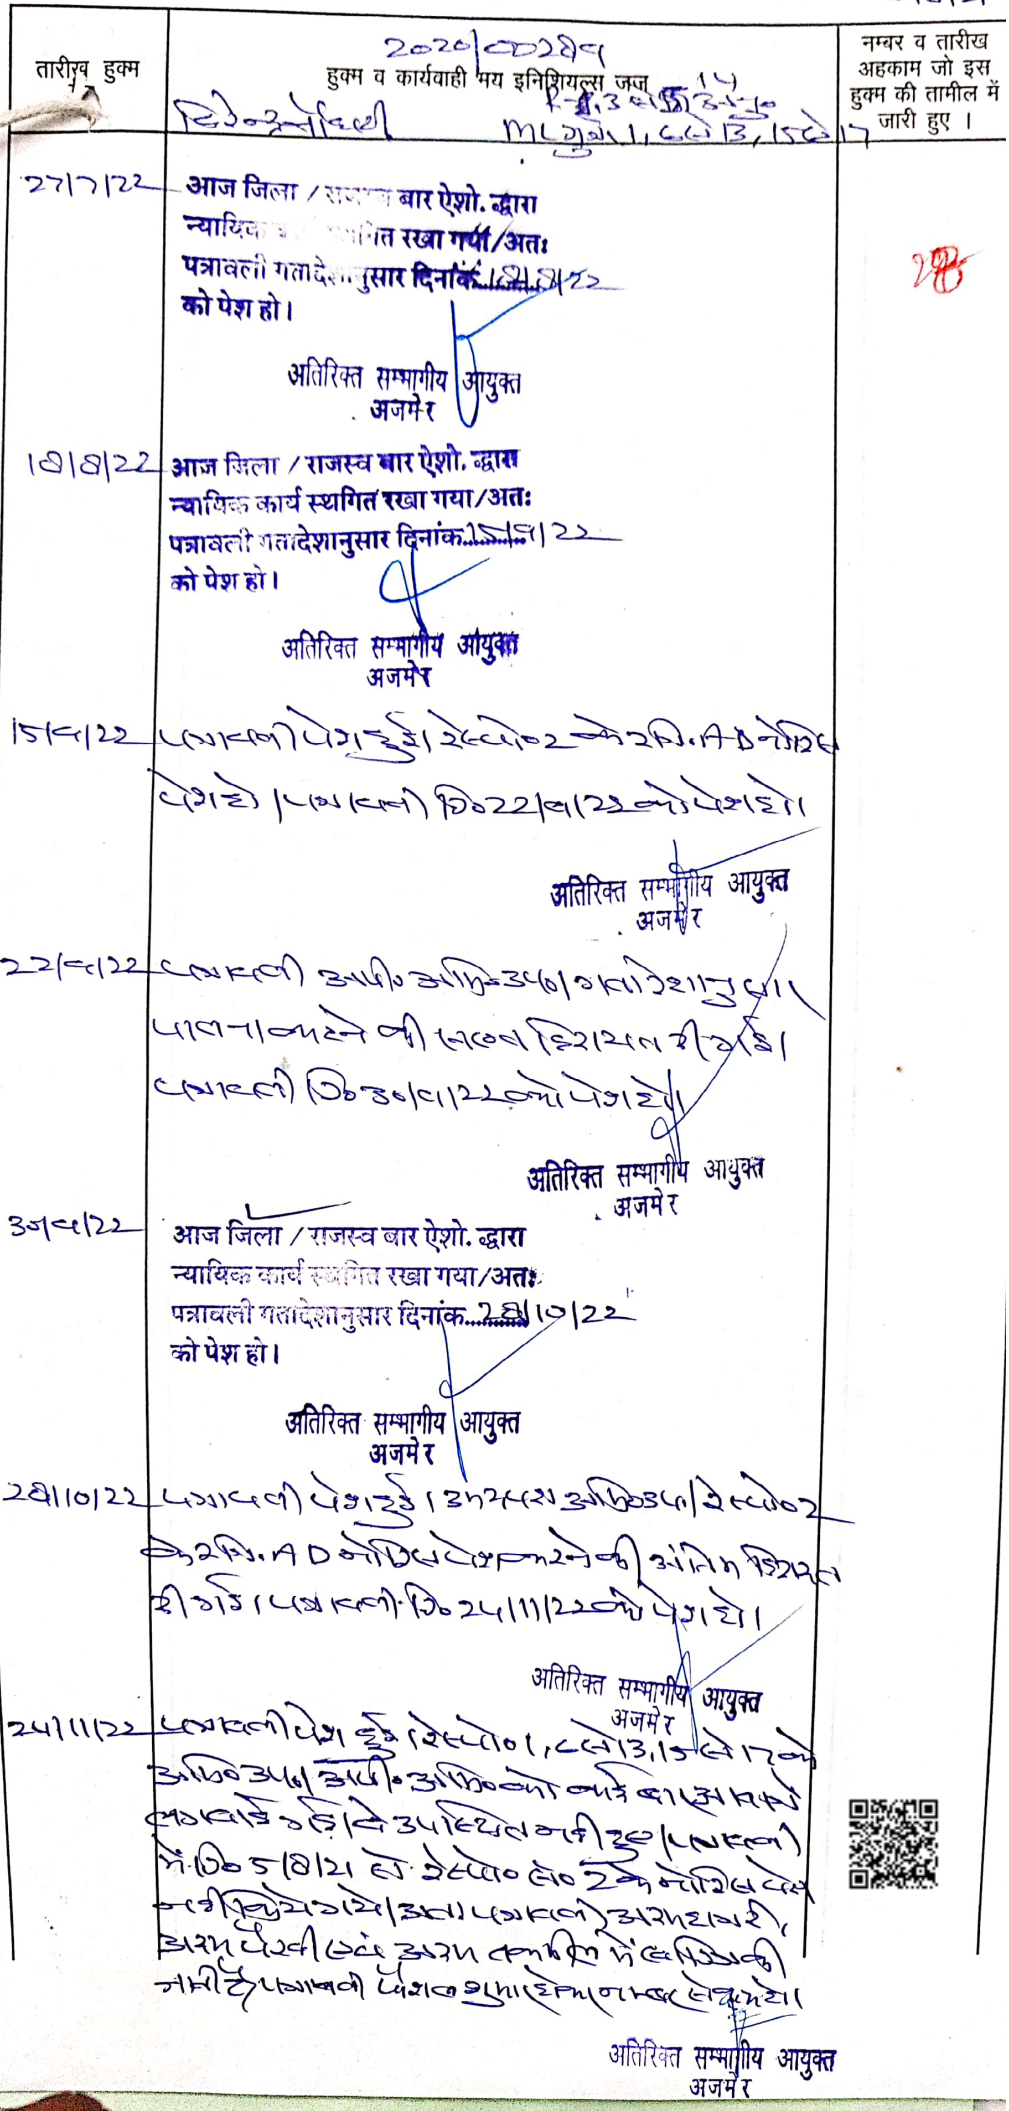 2020/00289
तारीख हुक्म
हुक्म व कार्यवाही मय इनिशियल्स जज
नम्बर व तारीख
अहकाम जो इस
हुक्म की तामील में
जारी हुए ।
27/7/22 आज जिला / राजस्व बार ऐशो. द्वारा
न्यायिक कार्य स्थगित रखा गया/अतः
पत्रावली गतादेशानुसार दिनांक 18/8/22
को पेश हो।
अतिरिक्त सम्भागीय आयुक्त
अजमेर
18/8/22 आज जिला / राजस्व बार ऐशो. द्वारा
न्यायिक कार्य स्थगित रखा गया/अतः
पत्रावली गतादेशानुसार दिनांक 15/9/22
को पेश हो।
अतिरिक्त सम्भागीय आयुक्त
अजमेर
15/9/22 पत्रावली पेश हुई। रेस्पो० 2 के रजि. AD नोटिस
पेश हो। पत्रावली दि० 22/9/22 को पेश हो।
अतिरिक्त सम्भागीय आयुक्त
अजमेर
22/9/22 पत्रावली अपी० अभि० उप०। गतादेशानुसार
पालना करने की सख्त हिदायत दी गई।
पत्रावली दि० 30/9/22 को पेश हो।
अतिरिक्त सम्भागीय आयुक्त
अजमेर
30/9/22 आज जिला / राजस्व बार ऐशो. द्वारा
न्यायिक कार्य स्थगित रखा गया/अतः
पत्रावली गतादेशानुसार दिनांक 28/10/22
को पेश हो।
अतिरिक्त सम्भागीय आयुक्त
अजमेर
28/10/22 पत्रावली पेश हुई। उभयपक्ष अभि० उप०। रेस्पो० 2
के रजि. AD नोटिस पेश करने की अंतिम हिदायत
दी गई। पत्रावली दि० 24/11/22 को पेश हो।
अतिरिक्त सम्भागीय आयुक्त
अजमेर
24/11/22 पत्रावली पेश हुई। रेस्पो० 1, 8 से 13, 15 से 17 के
अभि० उप०। अपी० अभि० को कई बार आवाजें
लगवाई गई। वे उपस्थित नहीं हुए। पत्रावली
में दि० 5/8/21 से रेस्पो० सं० 2 के नोटिस पेश
नहीं किये गये। अतः पत्रावली अदम हाजरी,
अदम पैरवी एवं अदम तकमील में खारिज की
जाती है। पत्रावली फैसल शुमार होकर नम्बर से कम हो।
अतिरिक्त सम्भागीय आयुक्त
अजमेर